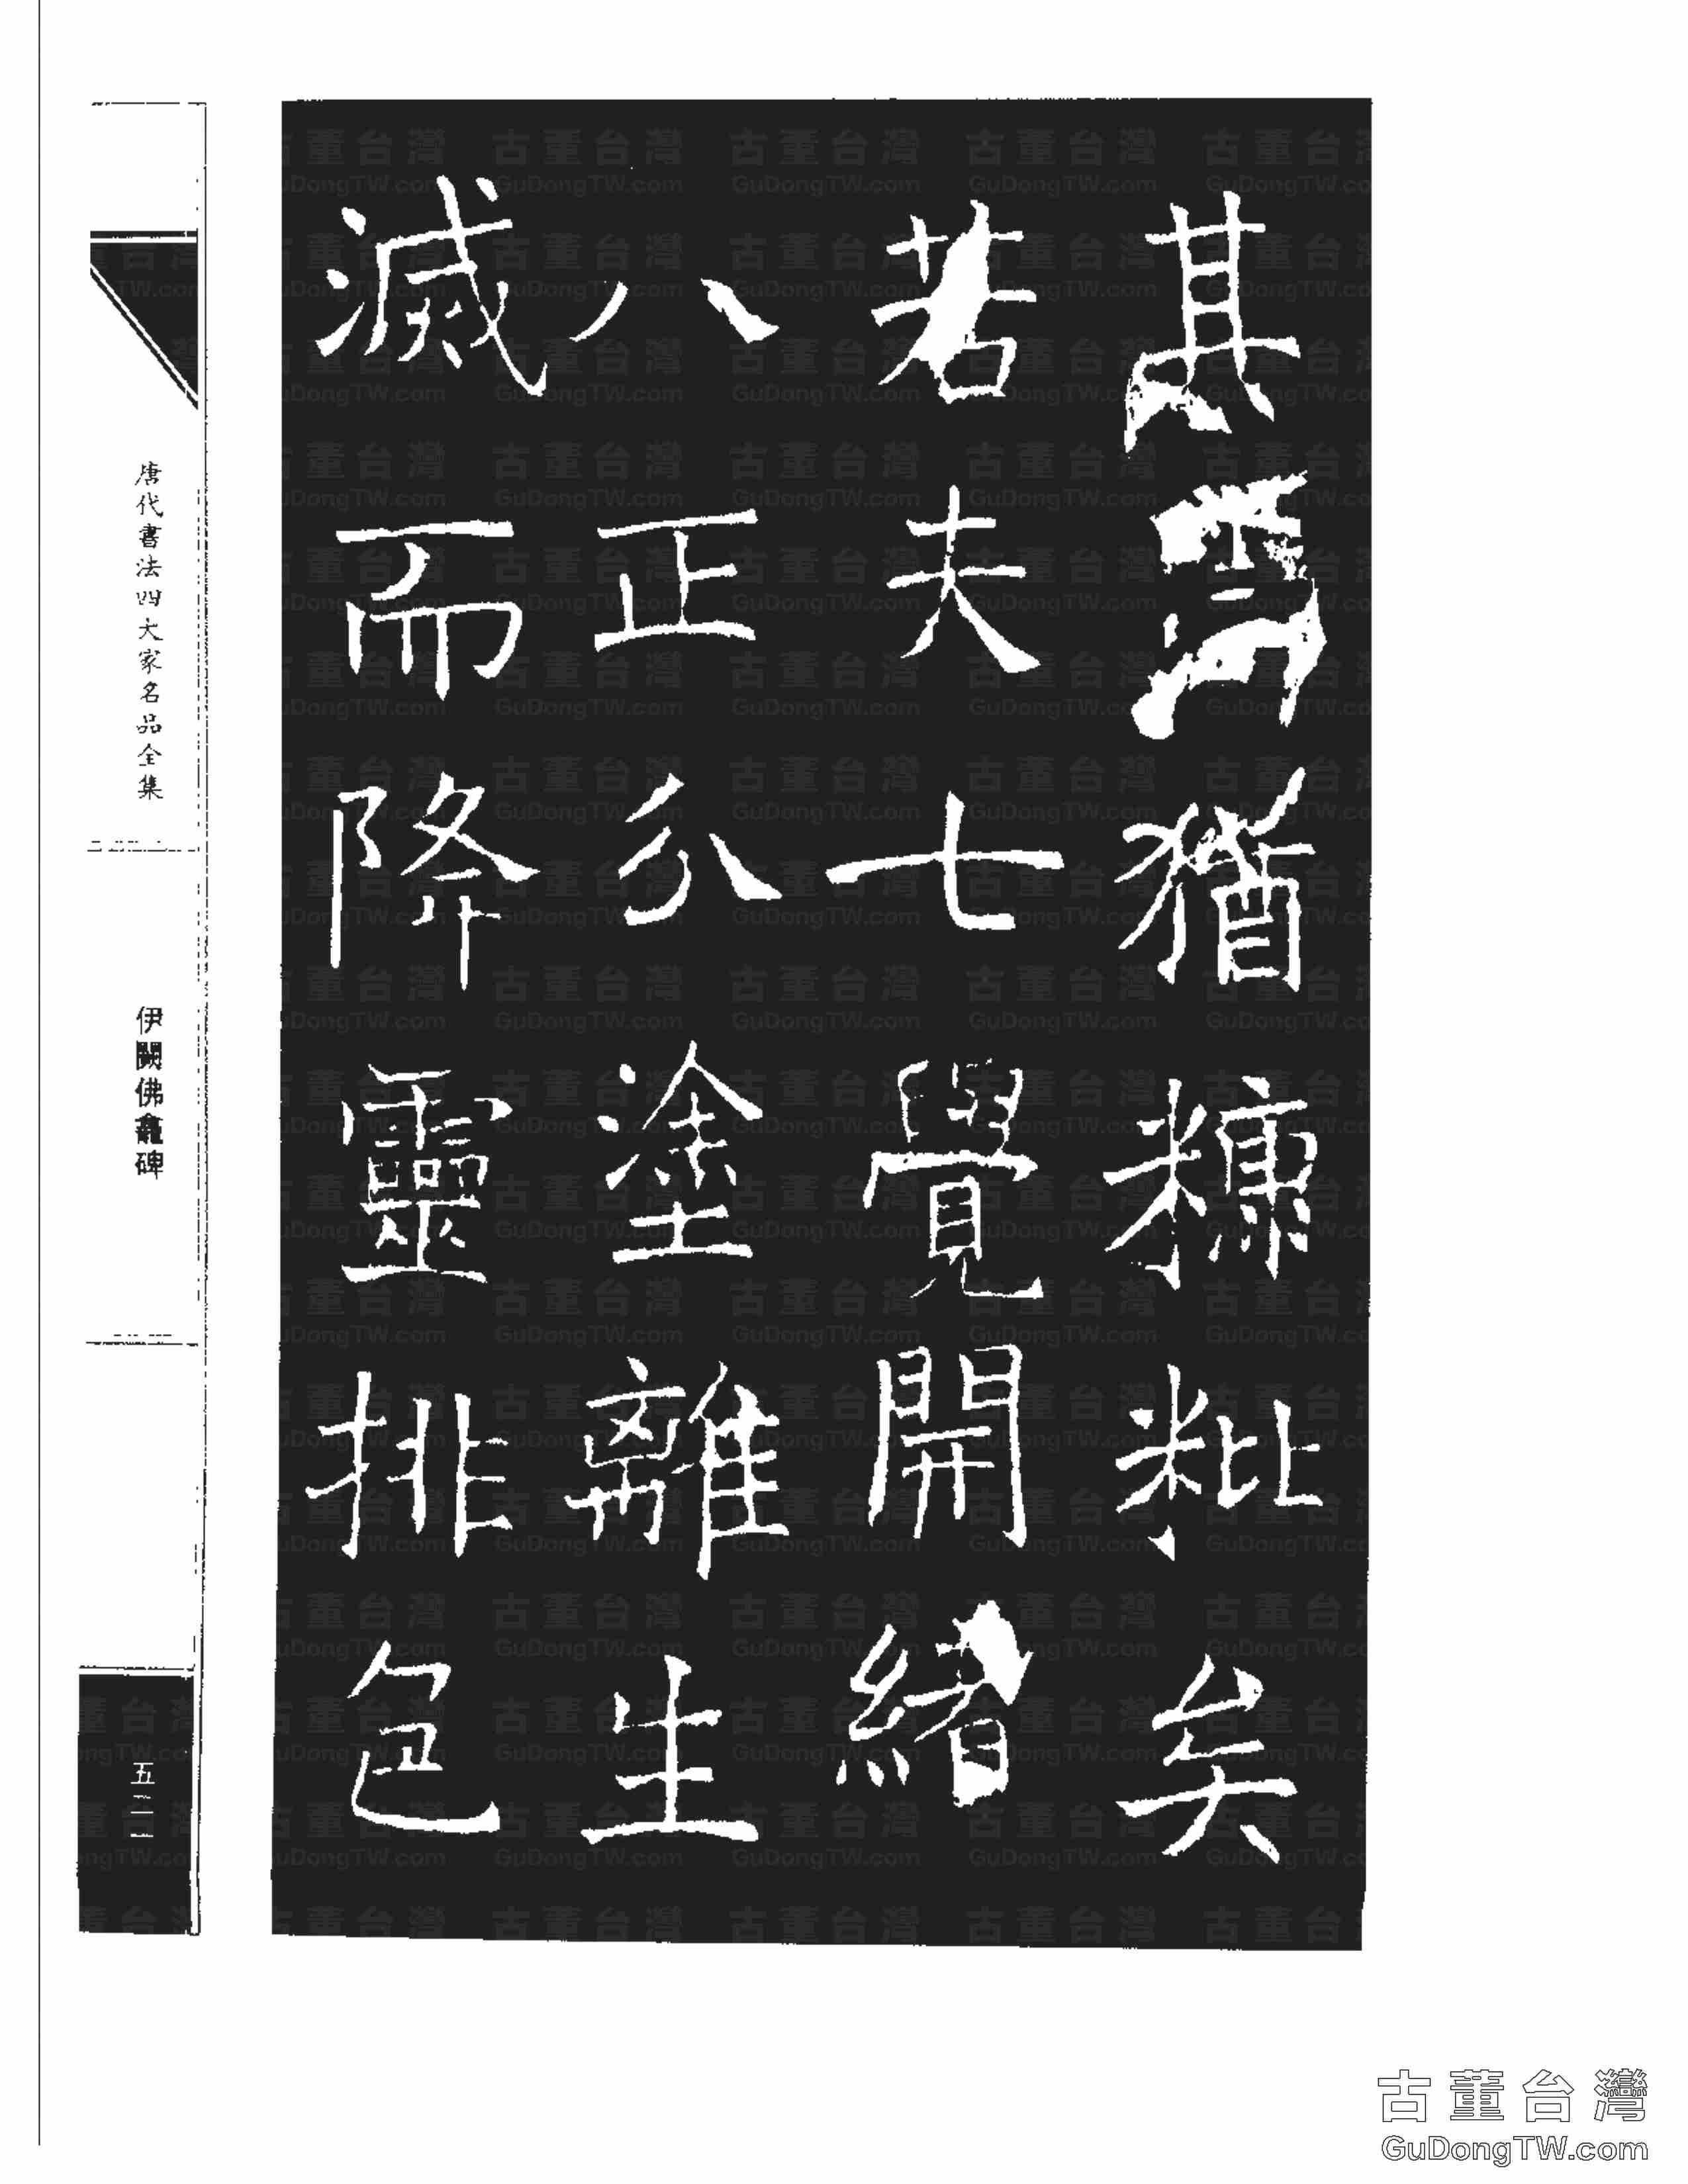 其猶糠粃矣
若夫七覺開緒
八正分塗離生
滅而降靈排色
唐代書法四大家名品全集
伊闕佛龕碑
五二一
古董台灣
GuDongTW.com